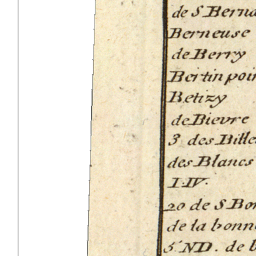 de S Berna
Berneuse
de Berry
Bertin poir
Betizy
de Bievre
3 des Bille
des Blancs
I.IV.
20 de S Bon
de la bonn
5 ND. de b